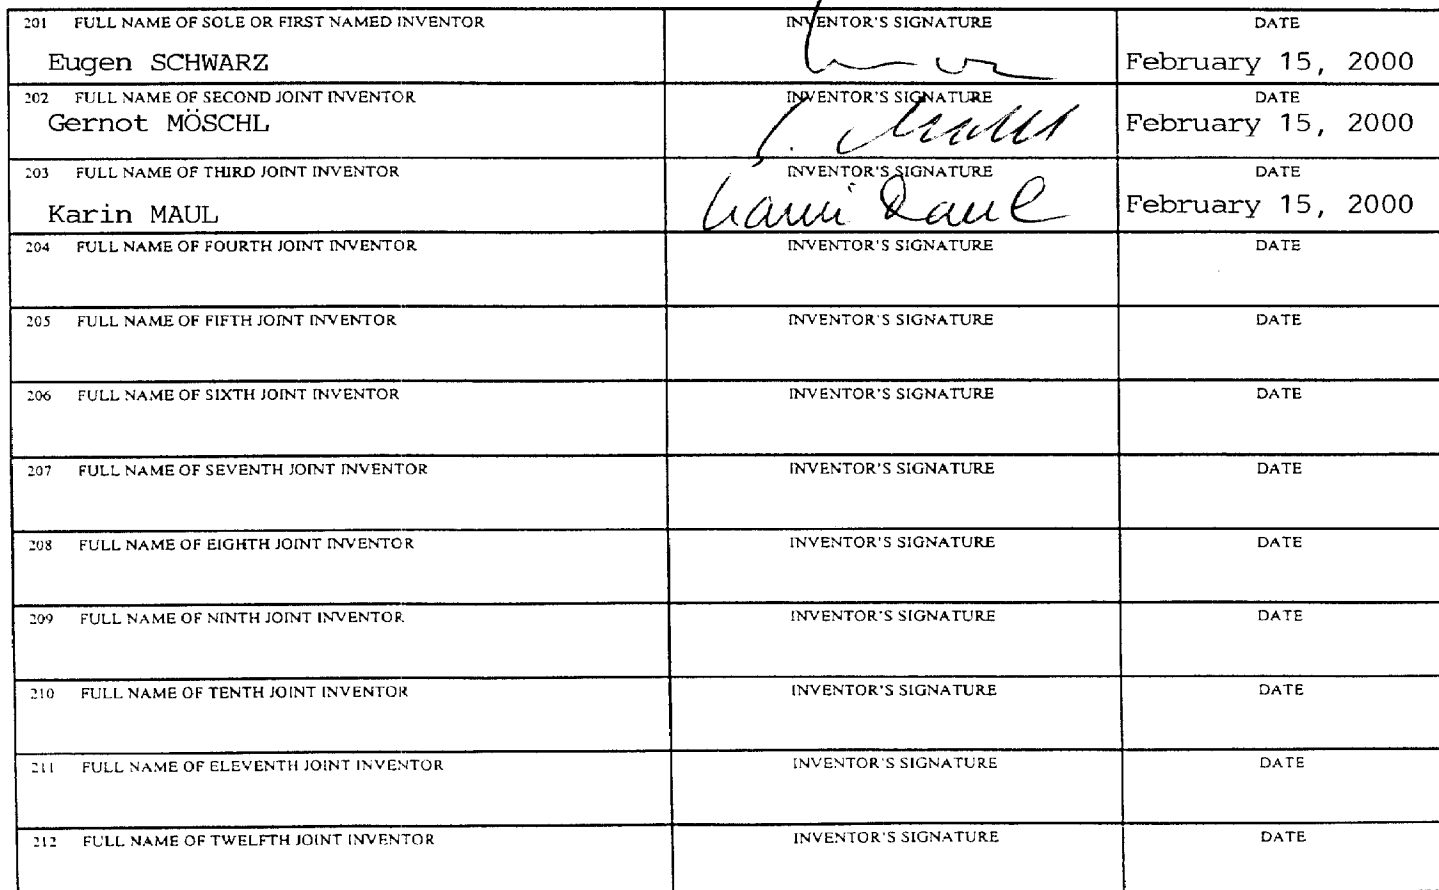 201 FULL NAME OF SOLE OR FIRST NAMED INVENTOR INVENTOR'S SIGNATURE DATE
Eugen SCHWARZ February 15, 2000
202 FULL NAME OF SECOND JOINT INVENTOR INVENTOR'S SIGNATURE DATE
Gernot MÖSCHL February 15, 2000
203 FULL NAME OF THIRD JOINT INVENTOR INVENTOR'S SIGNATURE DATE
Karin MAUL Karin Maul February 15, 2000
204 FULL NAME OF FOURTH JOINT INVENTOR INVENTOR'S SIGNATURE DATE
205 FULL NAME OF FIFTH JOINT INVENTOR INVENTOR'S SIGNATURE DATE
206 FULL NAME OF SIXTH JOINT INVENTOR INVENTOR'S SIGNATURE DATE
207 FULL NAME OF SEVENTH JOINT INVENTOR INVENTOR'S SIGNATURE DATE
208 FULL NAME OF EIGHTH JOINT INVENTOR INVENTOR'S SIGNATURE DATE
209 FULL NAME OF NINTH JOINT INVENTOR INVENTOR'S SIGNATURE DATE
210 FULL NAME OF TENTH JOINT INVENTOR INVENTOR'S SIGNATURE DATE
211 FULL NAME OF ELEVENTH JOINT INVENTOR INVENTOR'S SIGNATURE DATE
212 FULL NAME OF TWELFTH JOINT INVENTOR INVENTOR'S SIGNATURE DATE